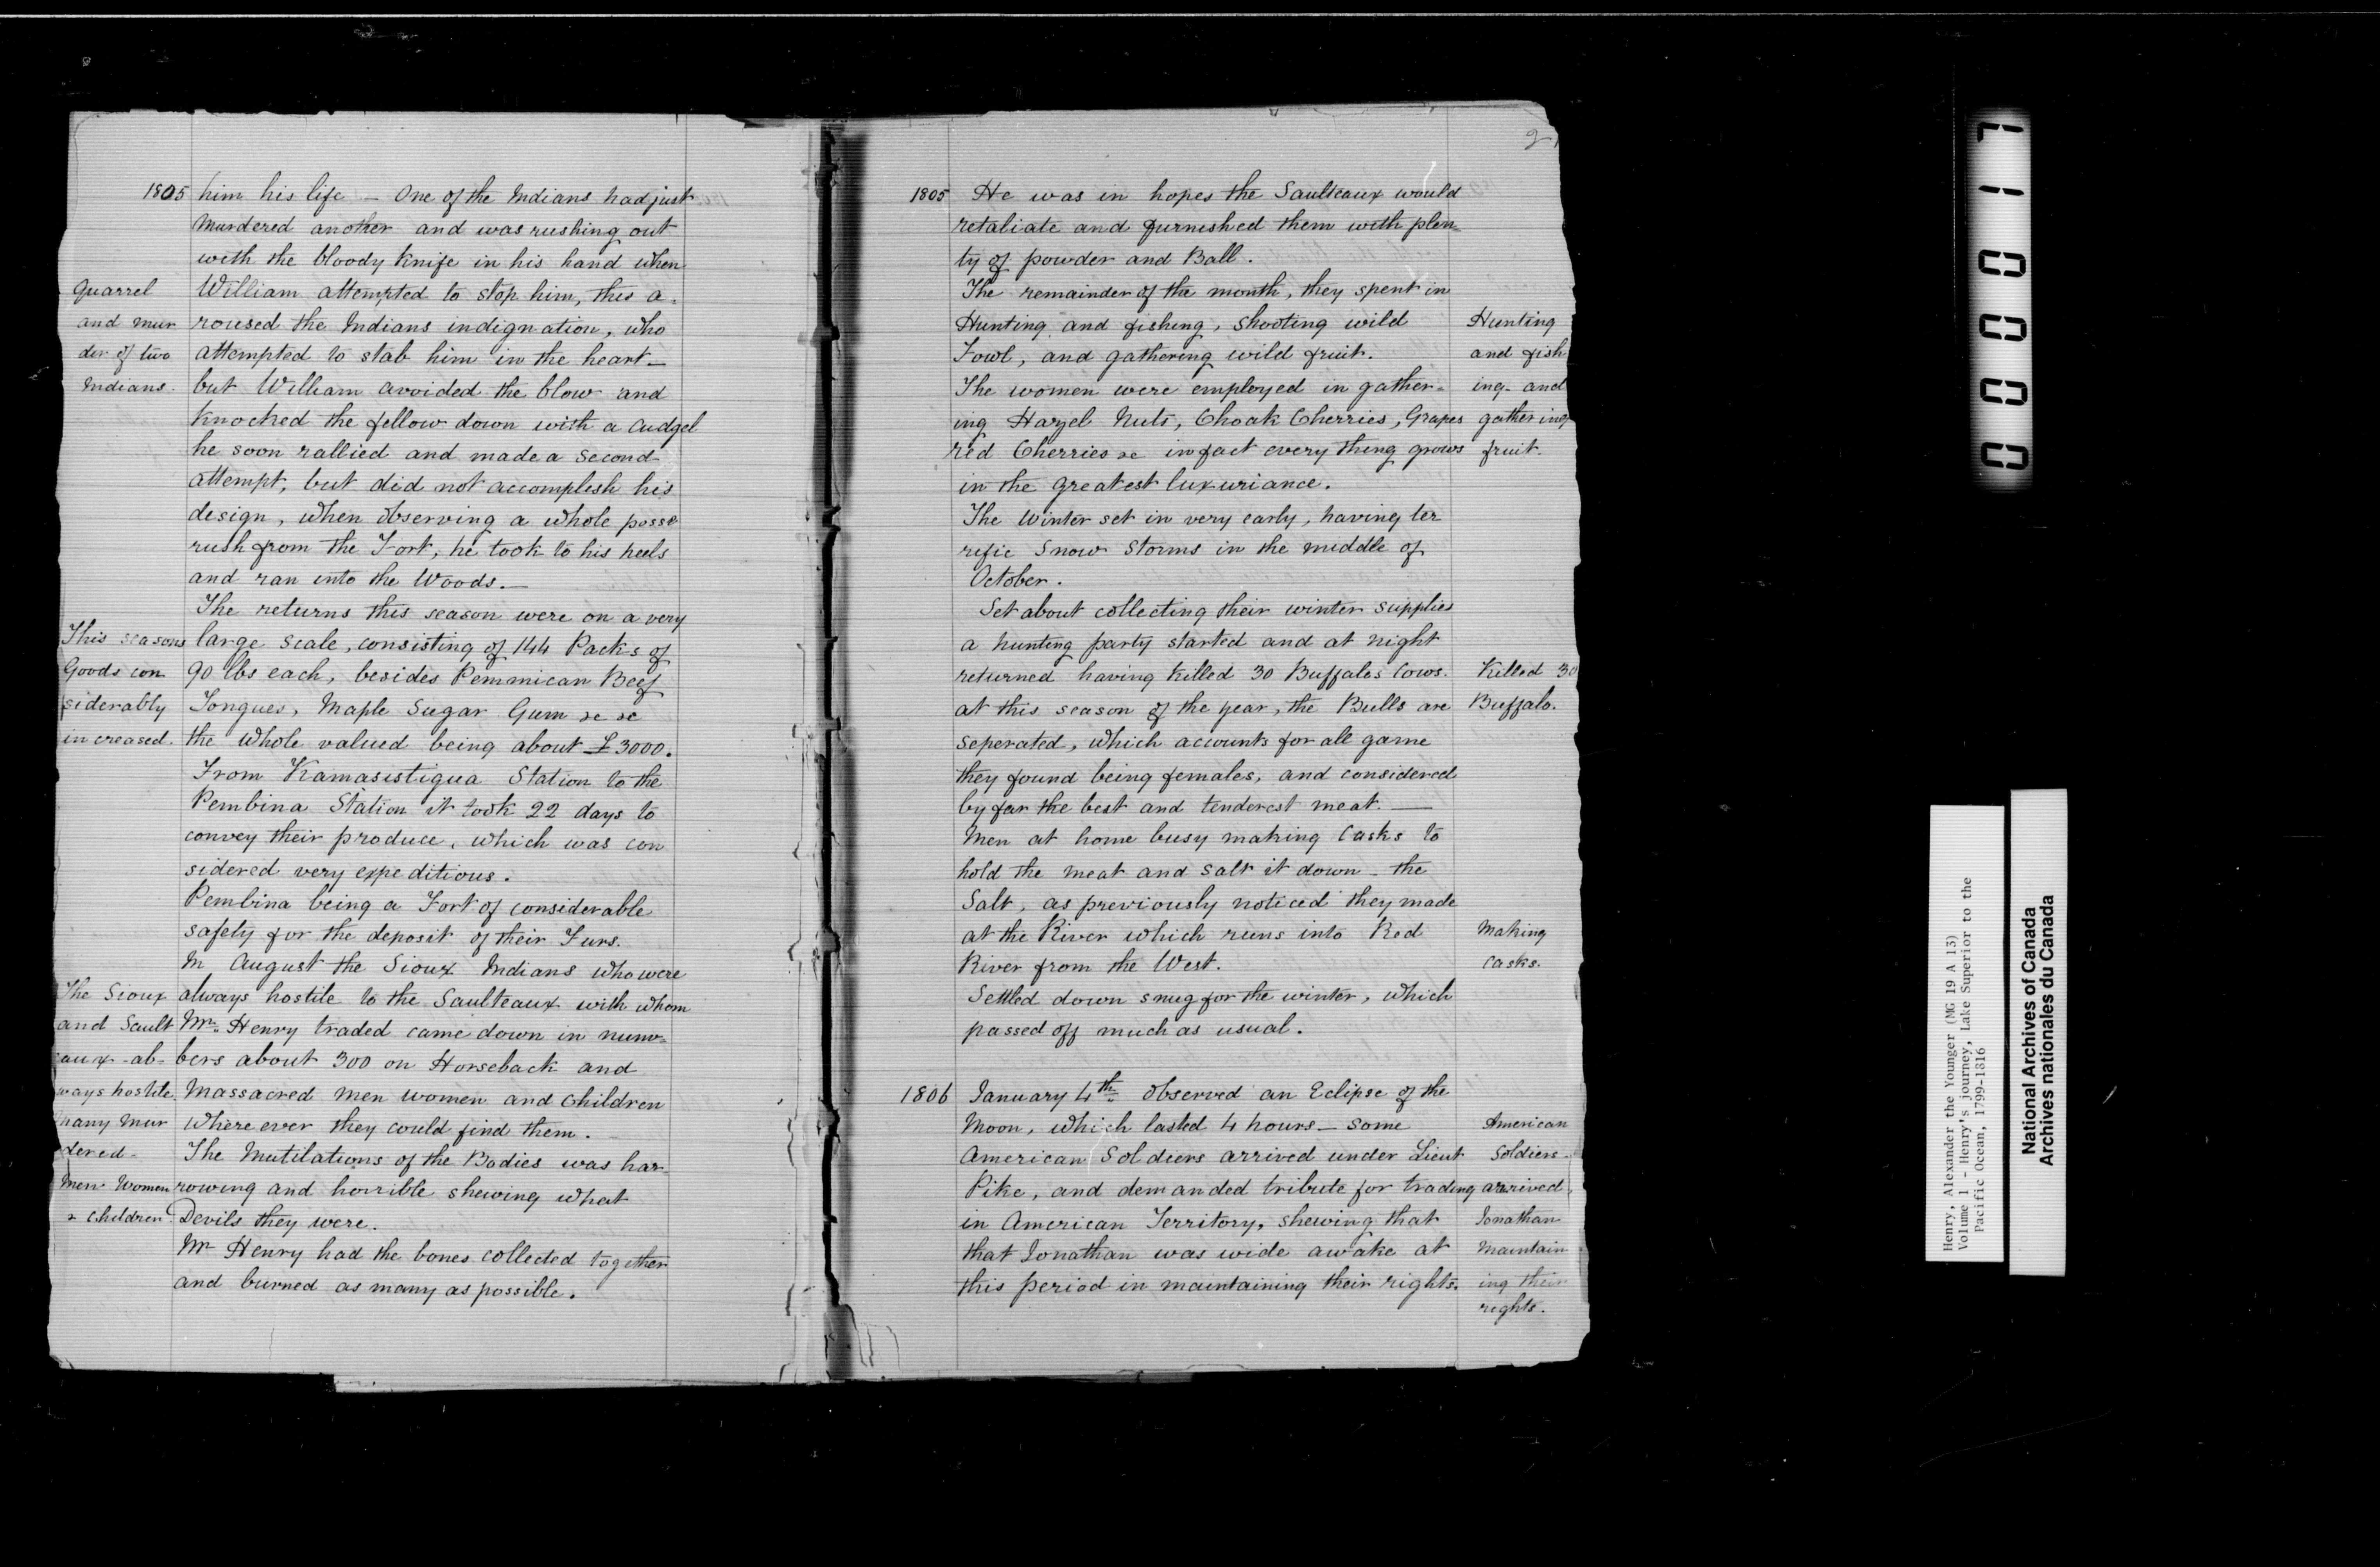 1805 him his life – One of the Indians had just
murdered another and was rushing out
with the bloody Knife in his hand when
Quarrel William attempted to stop him, this a-
and mur roused the Indians indignation, who
der of two attempted to stab him in the heart –
Indians. but William avoided the blow and
Knocked the fellow down with a cudgel
he soon rallied and made a second
attempt, but did not accomplish his
design, when observing a whole posse
rush from the Fort, he took to his heels
and ran into the Woods. –
The returns this season were on a very
This seasons large scale, consisting of 144 Packs of
Goods con 90 lbs each, besides Pemmican Beef
siderably Tongues, Maple Sugar Gum &c &c
increased. the whole valued being about £3000.
From Kamasistiqua Station to the
Pembina Station it took 22 days to
convey their produce, which was con
sidered very expeditious.
Pembina being a Fort of considerable
safety for the deposit of their Furs.
In August the Sioux Indians who were
The Sioux always hostile to the Saulteaux with whom
and Sault Mr. Henry traded came down in num-
aux -al- bers about 300 on Horseback and
ways hostile. Massacred men women and Children
many mur where ever they could find them.
dered - The Mutilations of the Bodies was har
Men Women rowing and horrible shewing what
& Children Devils they were.
Mr Henry had the bones collected together
and burned as many as possible.
2
1805 He was in hopes the Saulteaux would
retaliate and furnished them with plen-
ty of powder and Ball.
The remainder of the month, they spent in
Hunting and fishing, shooting wild Hunting
Fowl, and gathering wild fruit. and fish
The women were employed in gather- ing and
ing Hazel Nuts, Choak Cherries, Grapes gathering
red Cherries &c in fact every thing grows fruit.
in the greatest luxuriance.
The winter set in very early, having ter
rific Snow Storms in the middle of
October.
Set about collecting their winter supplies
a hunting party started and at night
returned having Killed 30 Buffalos Cows. Killed 30
at this season of the year, the Bulls are Buffalo.
seperated, which accounts for all game
they found being females, and considered
by far the best and tenderest meat. —
Men at home busy making Casks to
hold the meat and salt it down – the
Salt, as previously noticed they made
at the River which runs into Red Making
River from the West. Casks.
Settled down snug for the winter, which
passed off much as usual.
1806 January 4th observed an Eclipse of the
Moon, which lasted 4 hours – some American
American Soldiers arrived under Lieut Soldiers
Pike, and demanded tribute for trading arrived,
in American Territory, shewing that Jonathan
that Jonathan was wide awake at maintain
this period in maintaining their rights. ing their
rights.
000017
Henry, Alexander the Younger (MG 19 A 13)
Volume 1 - Henry's journey, Lake Superior to the
Pacific Ocean, 1799-1816
National Archives of Canada
Archives nationales du Canada